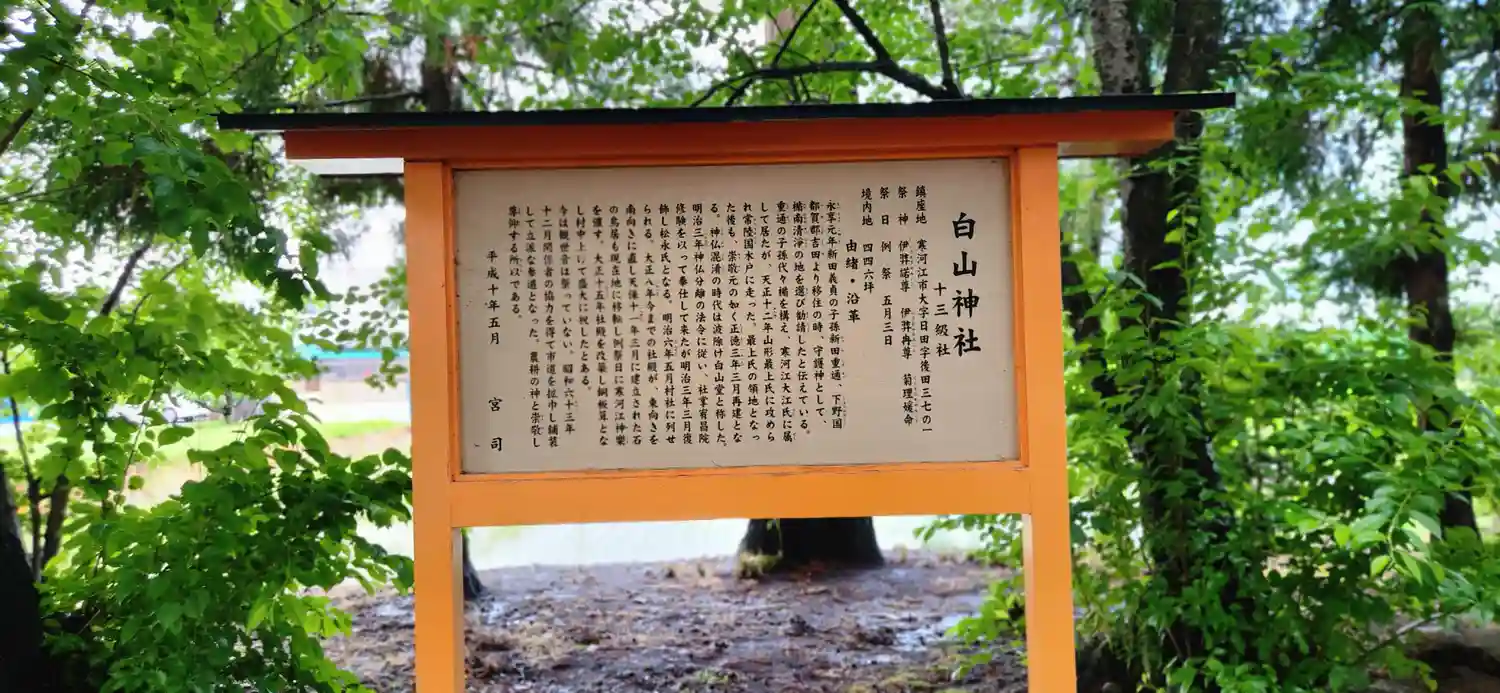 白山神社
十三級社
鎮座地 寒河江市大字日田字後田三七の一
祭神 伊弉諾尊 伊弉冉尊 菊理媛命
祭日 例祭 五月三日
境内地 四四六坪
由緒・沿革
永享元年新田義貞の子孫新田重通、下野国
都賀郡吉田より移住の時、守護神として、
楯南清浄の地を選び勧請したと伝えている。
重通の子孫代々楯を構え、寒河江大江氏に属
して居たが、天正十二年山形最上氏に攻めら
れ常陸国水戸に走った。最上氏の領地となっ
た後も、崇敬元の如く正徳三年三月再建とな
る。神仏混淆の時代は波除け白山堂と称した。
明治三年神仏分離の法令に従い、社掌宥昌院
修験を以って奉仕して来たが明治三年三月復
飾し松永氏となる。明治六年五月村社に列せ
られる。大正八年今までの社殿が、東向きを
南向きに直し天保十二年三月に建立された石
の鳥居も現在地に移転し例祭日に寒河江神楽
を催す。大正十五年社殿を改築し銅板葺とな
し村中上げて盛大に祝したとある。
今は観世音は祭っていない。昭和六十三年
十二月関係者の協力を得て市道を拡巾し舗装
して立派な参道となった。農耕の神と崇敬し
尊仰する所以である。
平成十年五月 宮司